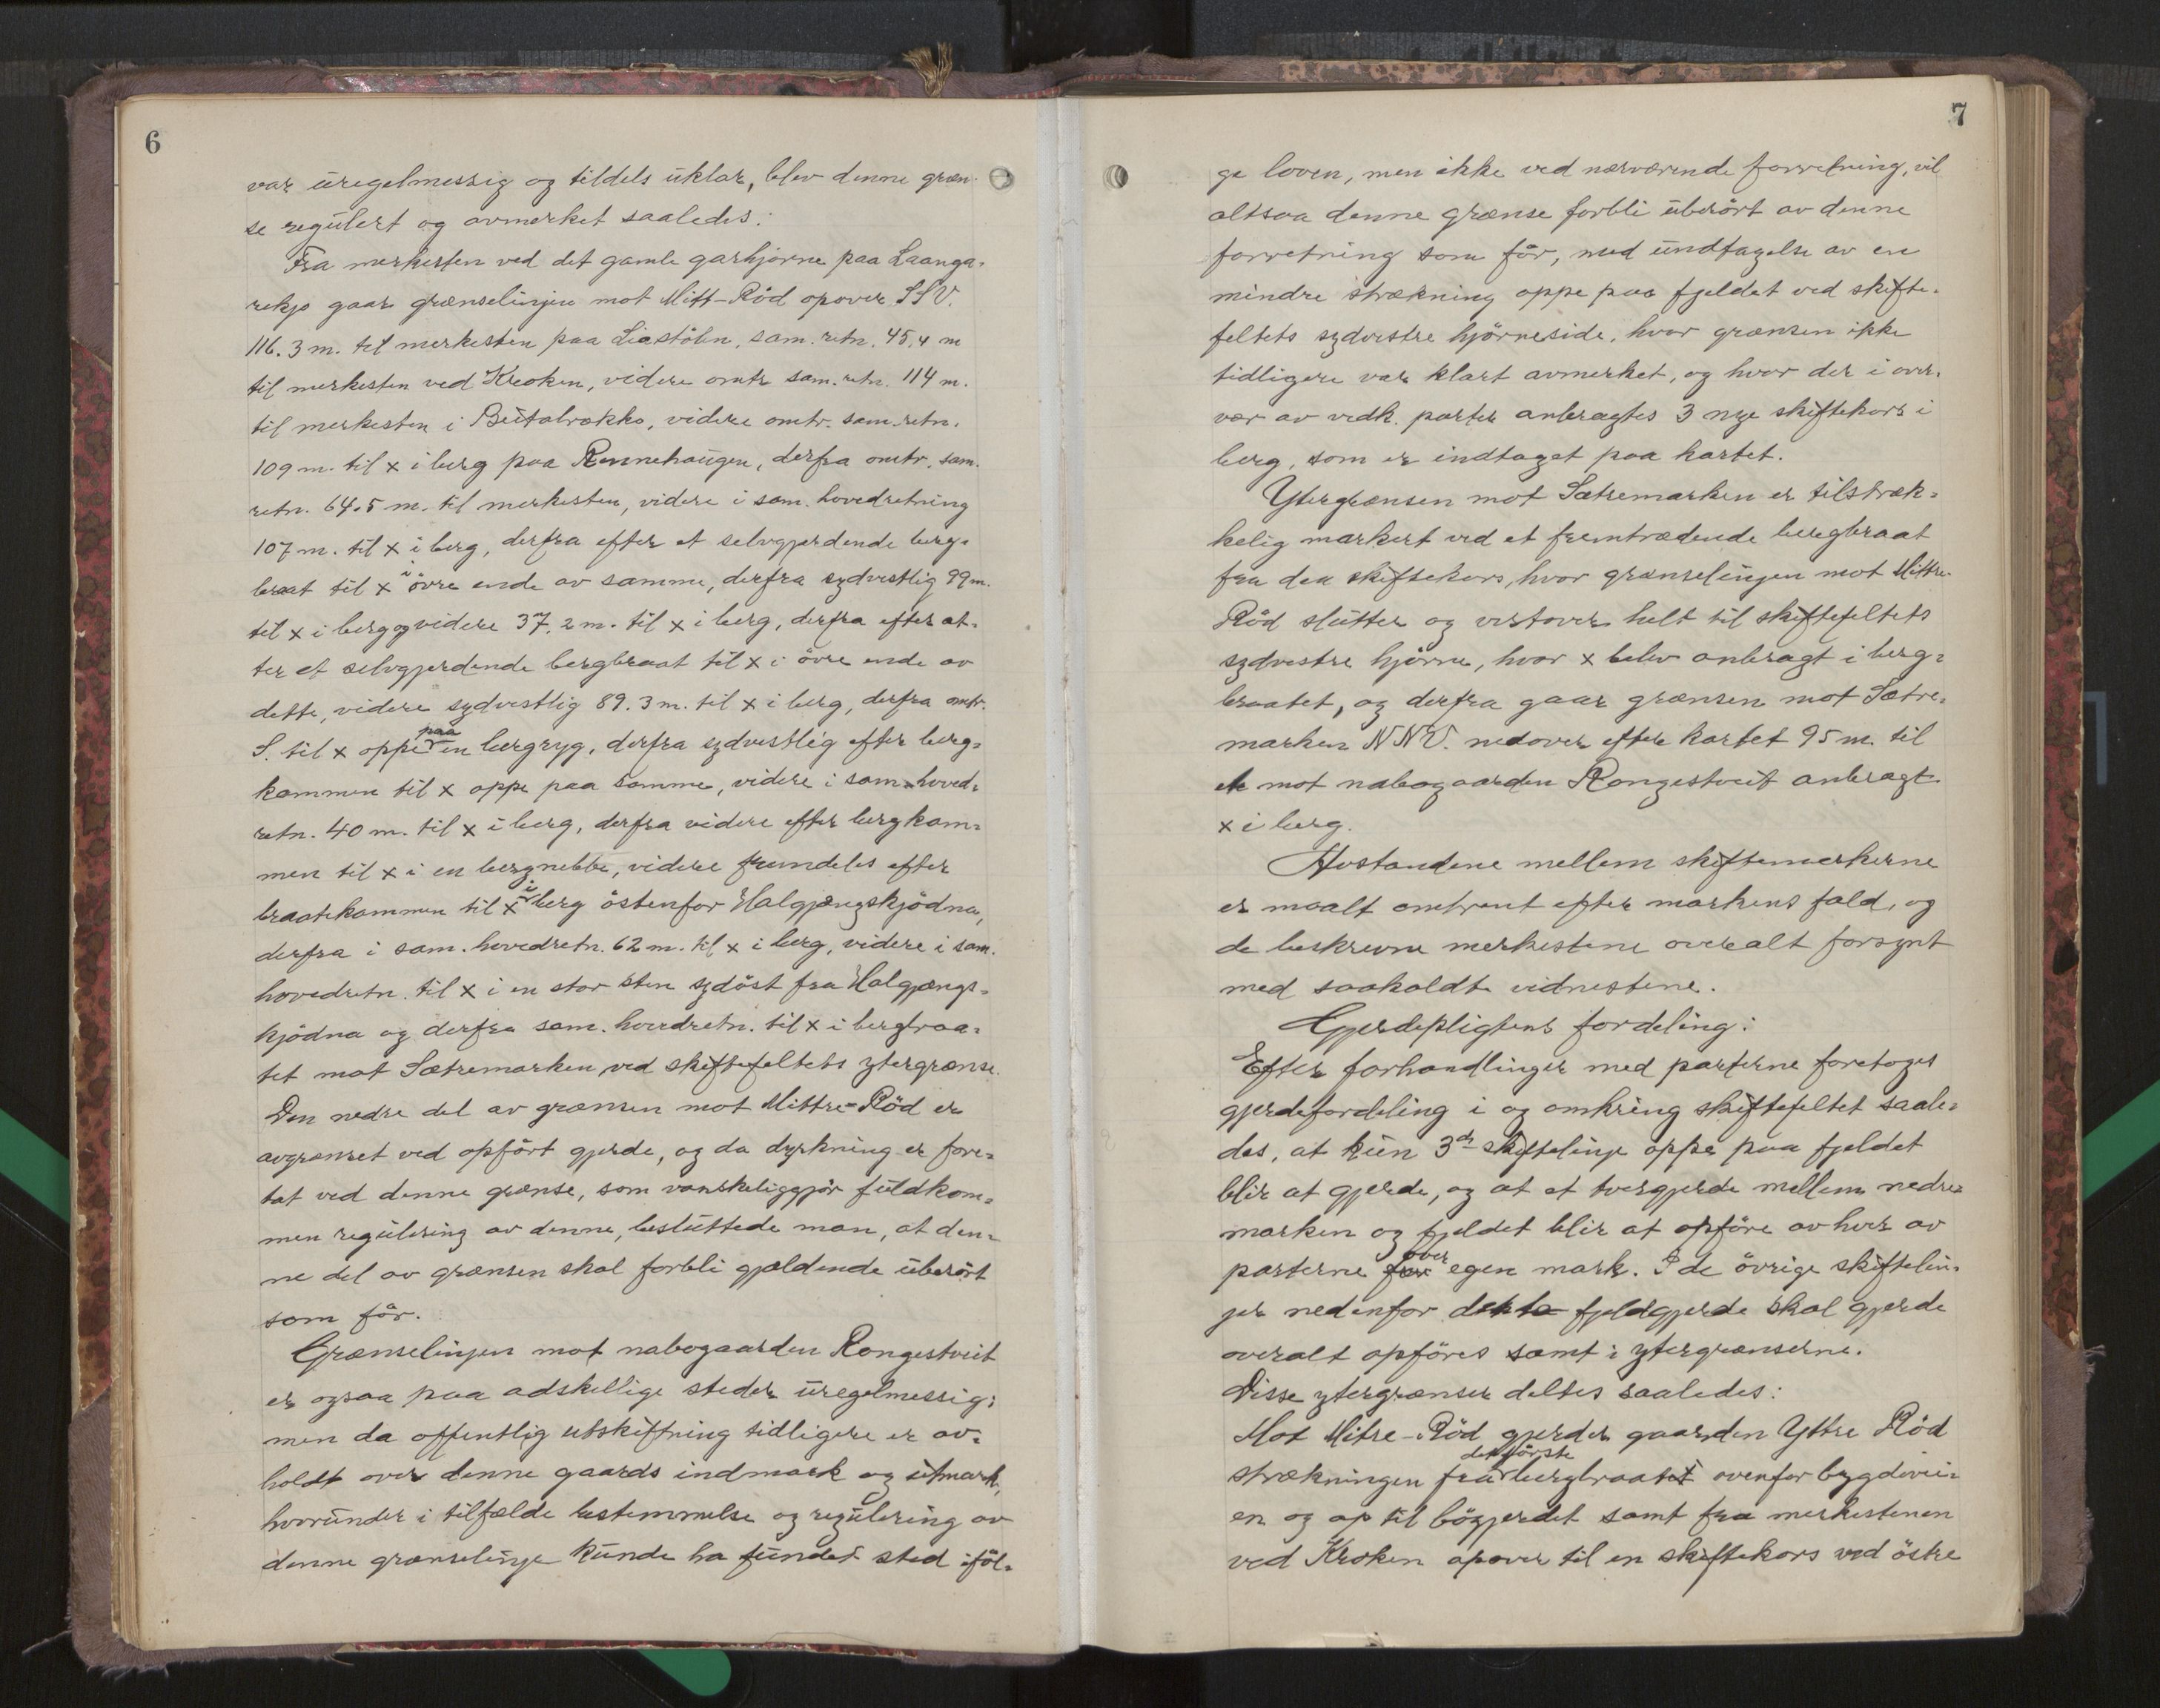 6
var uregelmessig og tildels uklar, blev denne græn-
se regulert og avmerket saaledes:
Fra merkesten ved det gamle garhjørne paa Laanga-
rekjo gaar grænselinjen mot Mitt-Röd opover SSV.
116.3 m. til merkesten paa Liastölen, sam. retn. 45,4 m
til merkesten ved Kroken, videre omtr. sam. retn. 114 m.
til merkesten i Butabrække, videre omtr. sam. retn.
109 m. til x i berg paa Rennehaugen, derfra omtr. sam.
retn. 64.5 m. til merkesten, videre i sam. hovedretning
107 m. til x i berg, derfra efter et selvgjerdende berg-
braat til x i övre ende av samme, derfra sydvestlig 99 m.
til x i berg og videre 37,2 m. til x i berg, derfra efter at-
ter et selvgjerdende bergbraat til x i övre ende av
dette, videre sydvestlig 89.3 m. til x i berg, derfra omtr.
S. til x oppe paa en bergryg, derfra sydvestlig efter berg-
kammen til x oppe paa samme, videre i sam. hoved-
retn. 40 m. til x i berg, derfra videre efter bergkam-
men til x i en bergnebbe, videre fremdeles efter
braatekammen til x i berg östenfor Halgjængskjödna,
derfra i sam. hovedretn. 62 m. til x i berg, videre i sam.
hovedretn. til x i en stor sten sydöst fra Halgjængs-
kjödna og derfra sam. hovedretn. til x i bergbraa-
tet mot Sætremarken ved skiftefeltets ytergrænse.
Den nedre del av grænsen mot Mittre-Röd er
avgrænset ved opfört gjerde, og da dyrkning er fore-
tat ved denne grænse, som vanskeliggjör fuldkom-
men regulering av denne, besluttede man, at den-
ne del av grænsen skal forbli gjældende uberört
som för.
Grænselinjen mot nabogaarden Rongestveit
er ogsaa paa adskellige steder uregelmessig;
men da offentlig utskiftning tidligere er av-
holdt over denne gaards indmark og utmark,
hvorunder i tilfælde bestemmelse og regulering av
denne grænselinje kunde ha fundet sted iföl-
7
ge loven, men ikke ved nærværende forretning, vil
altsaa denne grænse forbli uberört av denne
forretning som för, med undtagelse av en
mindre strækning oppe paa fjeldet ved skifte-
feltets sydvestre hjörneside, hvor grænsen ikke
tidligere var klart avmerket, og hvor der i over-
vær av vedk. parter anbragtes 3 nye skiftekors i
berg, som er indtaget paa kartet.
Ytergrænsen mot Sætremarken er tilstræk-
kelig markert ved et fremtrædende bergbraat
fra den skiftekors, hvor grænselinjen mot Mittre-
Röd slutter og vestover helt til skiftefeltets
sydvestre hjörne, hvor x belev anbragt i berg-
braatet, og derfra gaar grænsen mot Sætre-
marken NNV. nedover efter kartet 95 m. til
et mot nabogaarden Rongestveit anbragt
x i berg.
Avstandene mellem skiftemerkerne
er maalt omtrent efter markens fald, og
de beskrevne merkestene overalt forsynt
med saakaldte vidnestene.
Gjerdepligtens fordeling:
Efter forhandlinger med parterne foretoges
gjerdefordeling i og omkring skiftefeltet saale-
des, at kun 3de skiftelinje oppe paa fjeldet
blir at gjerde, og at et tvergjerde mellem nedre-
marken og fjeldet blir at opföre av hver av
parterne for over egen mark. I de övrige skiftelin-
jer nedenfor dette fjeldgjerde skal gjerde
overalt opföres samt i ytergrænserne.
Disse ytergrænser deltes saaledes:
Mot Mitre-Röd gjerder gaarden Yttre Röd
strækningen fra det förste bergbraatet ovenfor bygdevei-
en og op til bögjerdet samt fra merkestenen
ved Kroken opover til en skiftekors ved östre